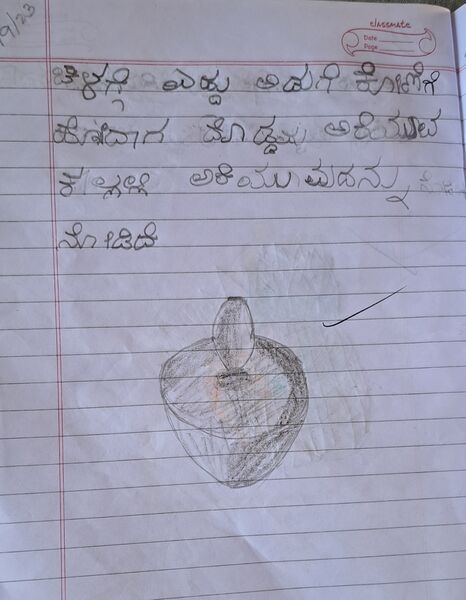 9/23
classmate
Date
Page
ಬೆಳಗ್ಗೆ ಎದ್ದು ಅಡುಗೆ ಕೋಣೆಗೆ
ಹೋದಾಗ ದೊಡ್ಡಮ್ಮ ಅರೆಯೂವ
ಕಲ್ಲಲ್ಲಿ ಅರೆಯುವುದನ್ನು
ನೋಡಿದೆ